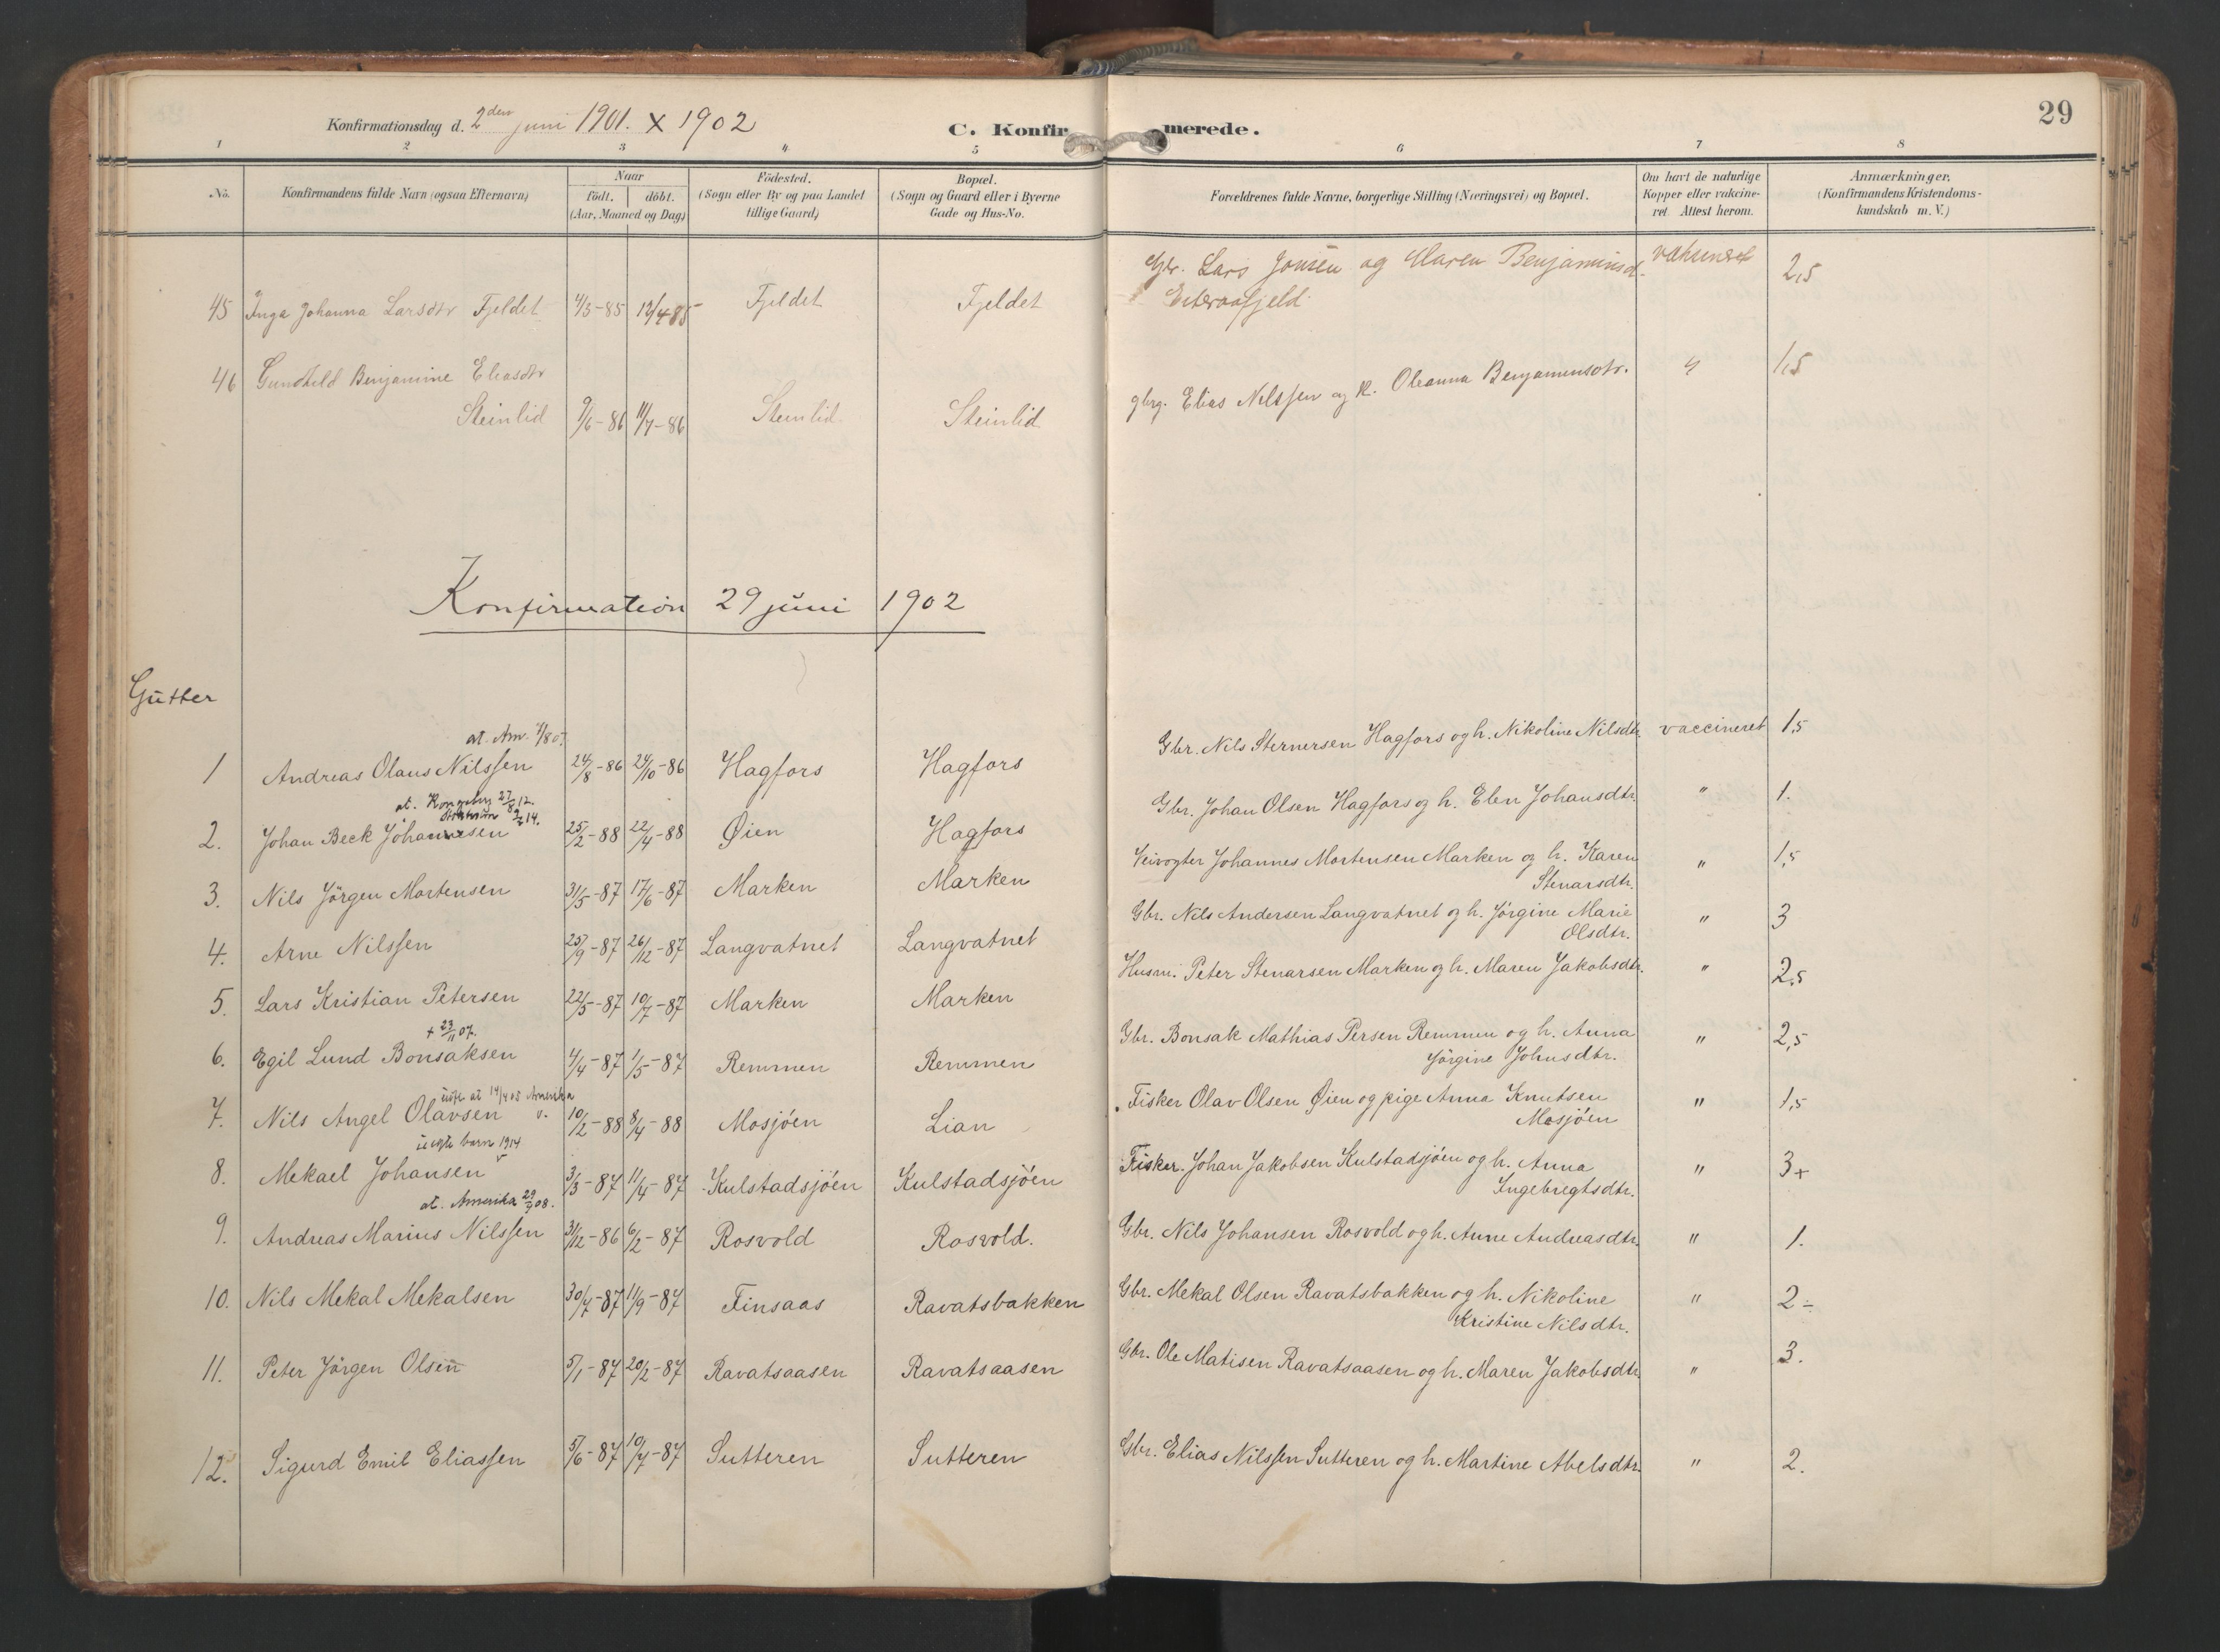 29
Konfirmationsdag d. 2den juni 1901. x 1902
C. Konfirmerede.
1 2 3 4 5 6 7 8
No. Konfirmandens fulde Navn (ogsaa Efternavn) Naar födt. döbt. (Aar, Maaned og Dag) Födested. (Sogn eller By og paa Landet tillige Gaard) Bopæl. (Sogn og Gaard eller i Byerne Gade og Hus-No. Forældrenes fulde Navne, borgerlige Stilling (Næringsvei) og Bopæl. Om havt de naturlige Kopper eller vakcineret Attest herom. Anmærkninger. (Konfirmandens Kristendomskundskab m. V.)
45 Inga Johanna Larsdtr Fjeldet 4/3-85 12/4-85 Fjeldet Fjeldet Gbr. Lars Jonsen og Maren Benjaminsd. vaksineret 2,5
46 Gundhild Benjamine Eliasdtr
Steinlid 9/6-86 11/7-86 Steinlid Steinlid gbrg. Elias Nilssen og k. Oleanna Benjaminsdtr. " 1,5
Konfirmation 29 juni 1902
Gutter
1 Andreas Olaus Nilssen 24/8-86 24/10-86 Hagfors Hagfors Gbr. Nils Sternersen Hagfors og h. Nikoline Nilsdtr. vaccineret 1,5
at. Kongsberg 27/8 12.
2. Johan Beck Johannesen 25/2-88 22/4-88 Øien Hagfors Gbr. Johan Olsen Hagfors og h. Elen Johansdtr. " 1.
3. Nils Jörgen Mortensen 31/5-87 17/6-87 Marken Marken Veivogter Johannes Mortensen Marken og h. Karen " 1,5
Stenarsdtr.
4. Arne Nilssen 25/9-87 26/12-87 Langvatnet Langvatnet Gbr. Nils Andersen Langvatnet og h. Jörgine Marie " 3
Olsdtr.
5. Lars Kristian Petersen 22/5-87 10/7-87 Marken Marken Husm. Peter Stenarsen Marken og h. Maren Jakobsdtr. " 2,5
+ 23/11 07.
6. Egil Lund Bonsaksen 4/4-87 1/5-87 Remmen Remmen Gbr. Bonsak Mathias Persen Remmen og h. Anna " 2,5
Jörgine Johnsdtr.
at 14/4 05 Amerika
7. Nils Angel Olavsen 10/2-88 8/4-88 Mosjöen Lian Fisker Olav Olsen Øien og pige Anna Knutsen " 1,5
Mosjöen
uegte barn 1914
8. Mekael Johansen 3/3-87 11/4-87 Kulstadsjöen Kulstadsjöen Fisker. Johan Jakobsen Kulstadsjöen og h. Anna " 3+
Ingebregtsdtr.
at. Amerika 29/9 08.
9. Andreas Marius Nilssen 31/12-86 6/2-87 Rosvold Rosvold. Gbr. Nils Johansen Rosvold og h. Anne Andreasdtr. " 1.
10. Nils Mekal Mekalsen 30/7-87 11/9-87 Finsaas Ravatsbakken Gbr. Mekal Olsen Ravatsbakken og h. Nikoline " 2-
Kristine Nilsdtr.
11. Peter Jörgen Olsen 5/1-87 20/2-87 Ravatsaasen Ravatsaasen Gbr. Ole Matisen Ravatsaasen og h. Maren Jakobsdtr. " 3.
12. Sigurd Emil Eliassen 5/6-87 10/7-87 Sutteren Sutteren Gbr. Elias Nilssen Sutteren og h. Martine Abelsdtr. " 2.